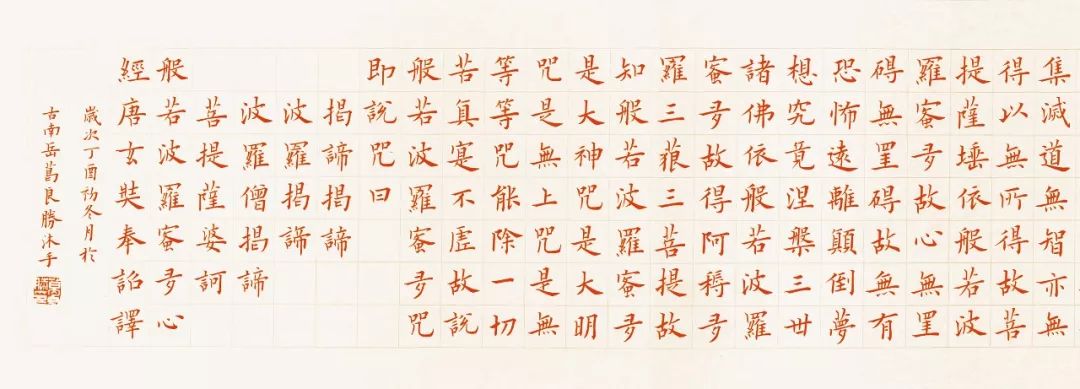 集滅道無智亦無
得以無所得故菩
提薩埵依般若波
羅蜜多故心無罣
碍無罣碍故無有
恐怖遠離顛倒夢
想究竟涅槃三世
諸佛依般若波羅
蜜多故得阿耨多
羅三藐三菩提故
知般若波羅蜜多
是大神咒是大明
咒是無上咒是無
等等咒能除一切
苦真寔不虛故說
般若波羅蜜多咒
即說咒曰
揭諦揭諦
波羅揭諦
波羅僧揭諦
菩提薩婆訶
般若波羅蜜多心
經唐玄奘奉詔譯
歲次丁酉初冬月於
古南岳葛良勝沐手